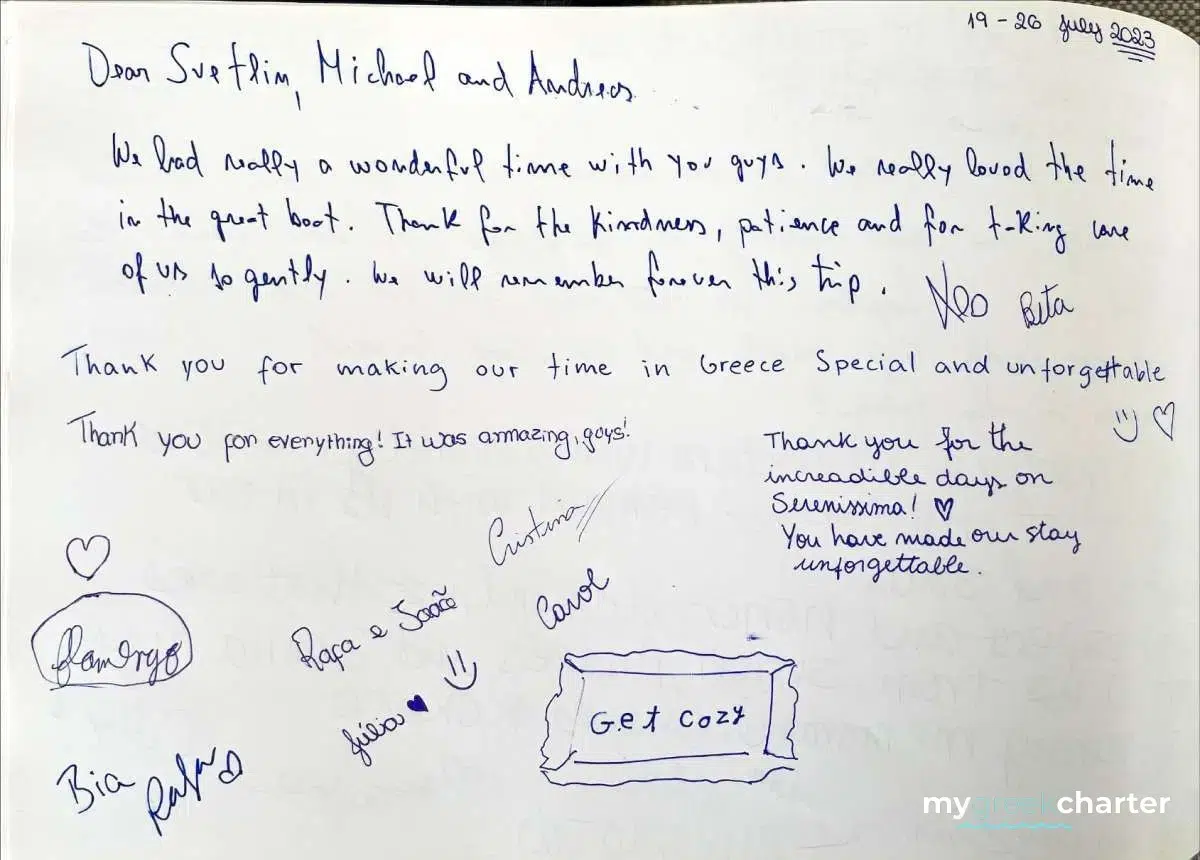 19 - 26 July 2023
Dear Svetlin, Michael and Andreas
We had really a wonderful time with you guys. We really loved the time
in the great boat. Thank for the kindness, patience and for taking care
of us so gently. We will remember forever this trip.
Neo Beta
Thank you for making our time in Greece Special and unforgettable
Thank you for everything! It was amazing, guys!
Thank you for the
increadible days on
Serenissima! ♡
You have made our stay
unforgettable.
Cristina
Carol
flamingo
Rafa e João
Júlia ♥
Get cozy
Bia
Rafa
mygreekcharter